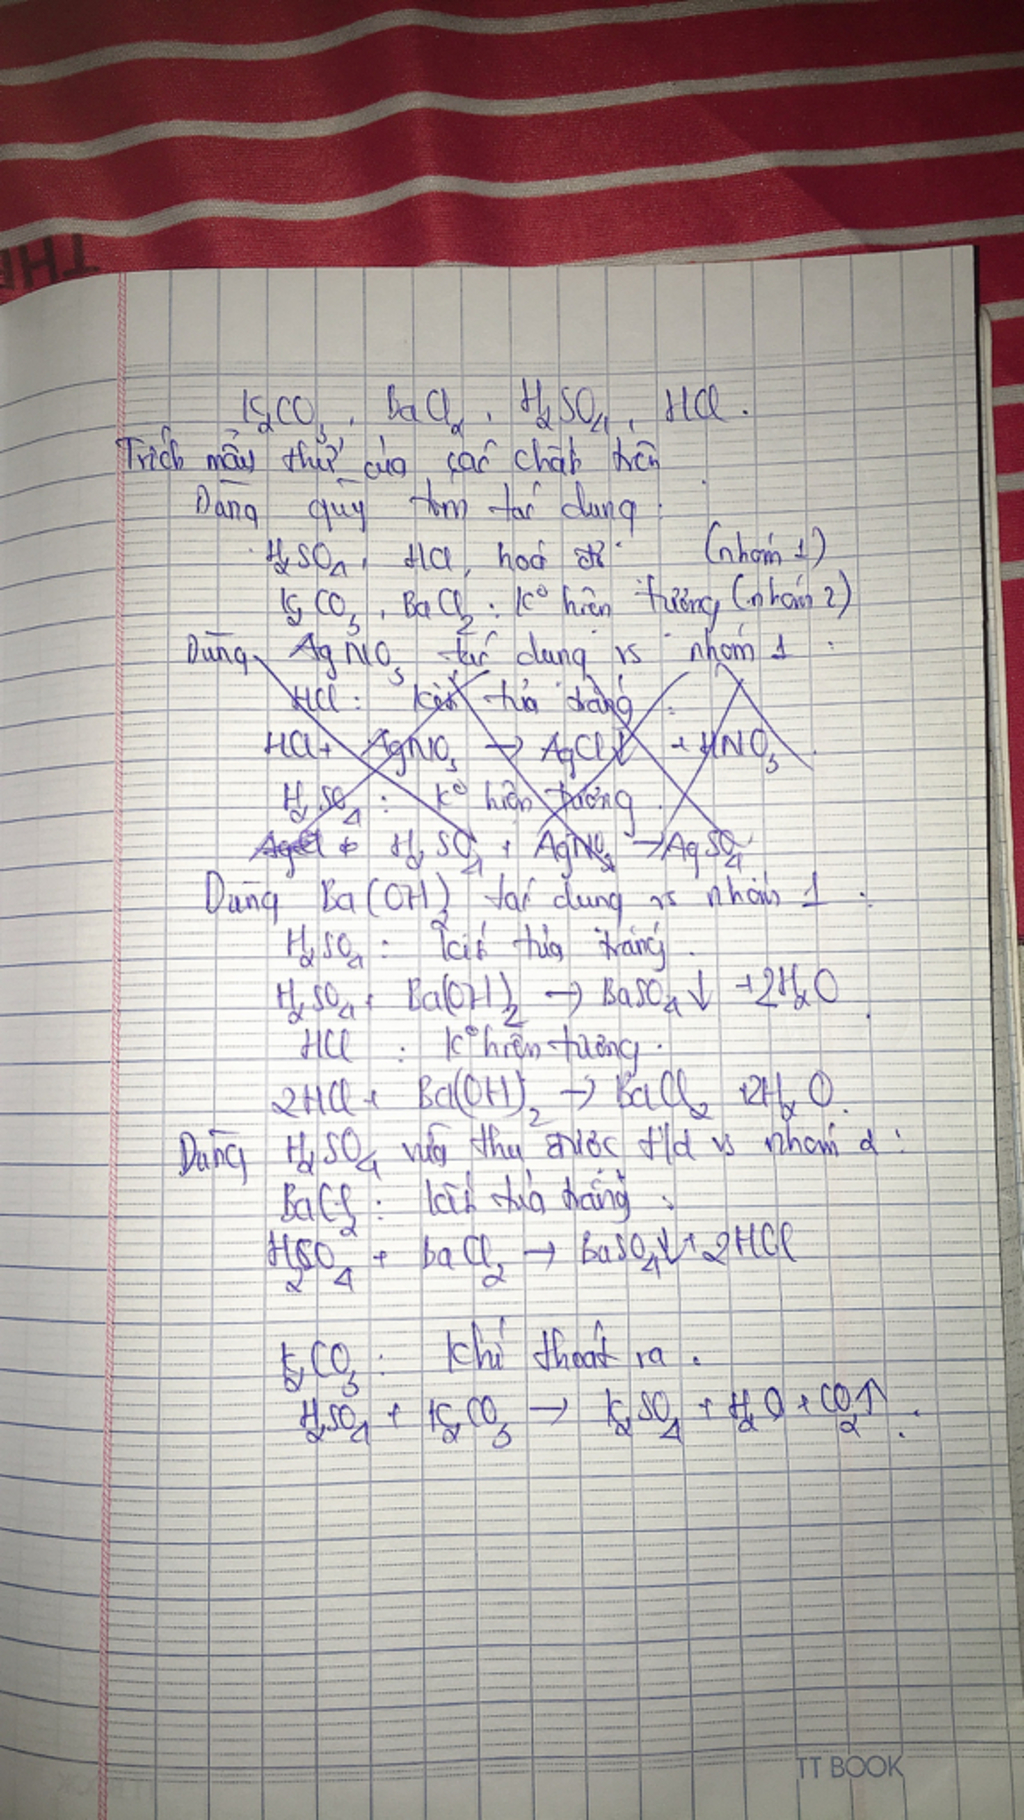 THE
K2CO3, BaCl2, H2SO4, HCl.
Trích mẫu thử của các chất trên
Dùng quỳ tím tác dụng:
H2SO4, HCl, hoá đỏ (nhóm 1)
K2CO3, BaCl2: K° hiện tượng (nhóm 2)
Dùng AgNO3 tác dụng vs nhóm 1:
HCl: kết tủa trắng:
HCl + AgNO3 → AgCl↓ + HNO3
H2SO4: K° hiện tượng.
H2SO4 + AgNO3 → AgSO4
Dùng Ba(OH)2 tác dụng vs nhóm 1:
H2SO4: kết tủa trắng.
H2SO4 + Ba(OH)2 → BaSO4↓ + 2H2O
HCl: K° hiện tượng.
2HCl + Ba(OH)2 → BaCl2 + 2H2O.
Dùng H2SO4 vừa thu được t/d vs nhóm 2:
BaCl2: kết tủa trắng:
H2SO4 + BaCl2 → BaSO4↓ + 2HCl
K2CO3: khí thoát ra.
H2SO4 + K2CO3 → K2SO4 + H2O + CO2↑.
TT BOOK